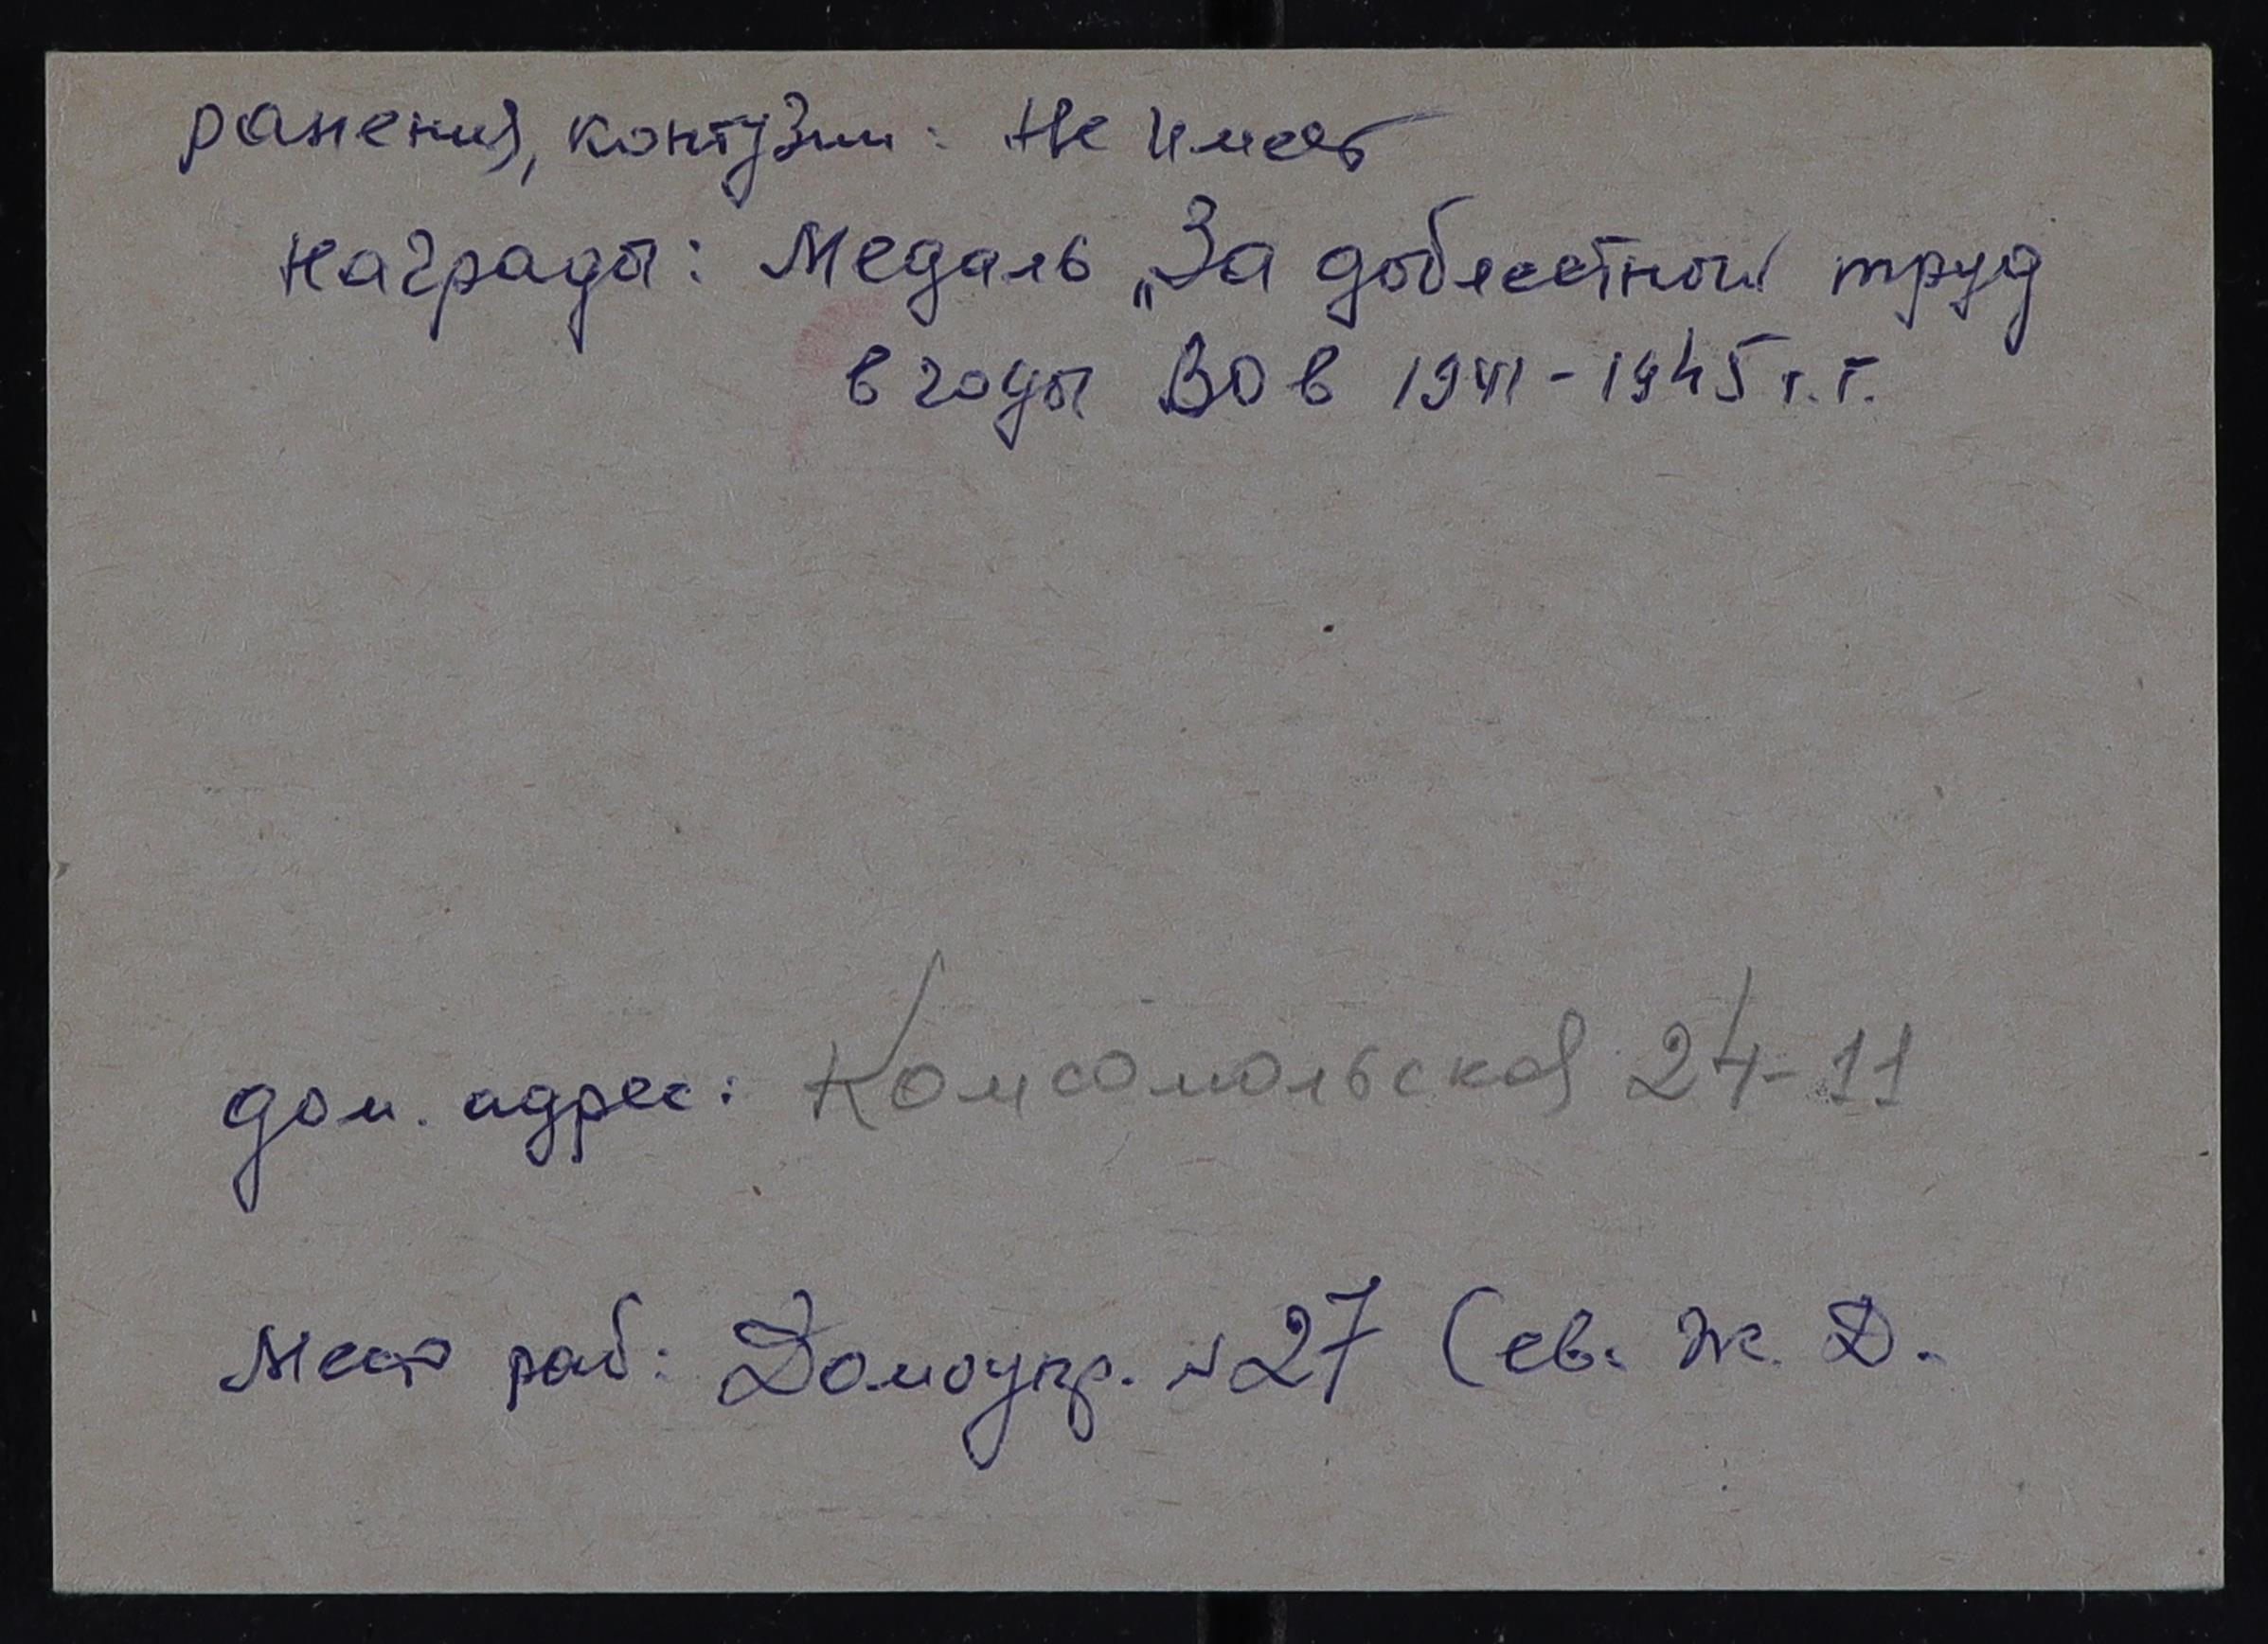 ранения, контузии: не имеет
награды: Медаль „За доблестный труд
в годы ВОв 1941-1945 г.г.
дом. адрес: Комсомольская 24-11
Место раб: Домоупр. №27 Сев. Ж. Д.